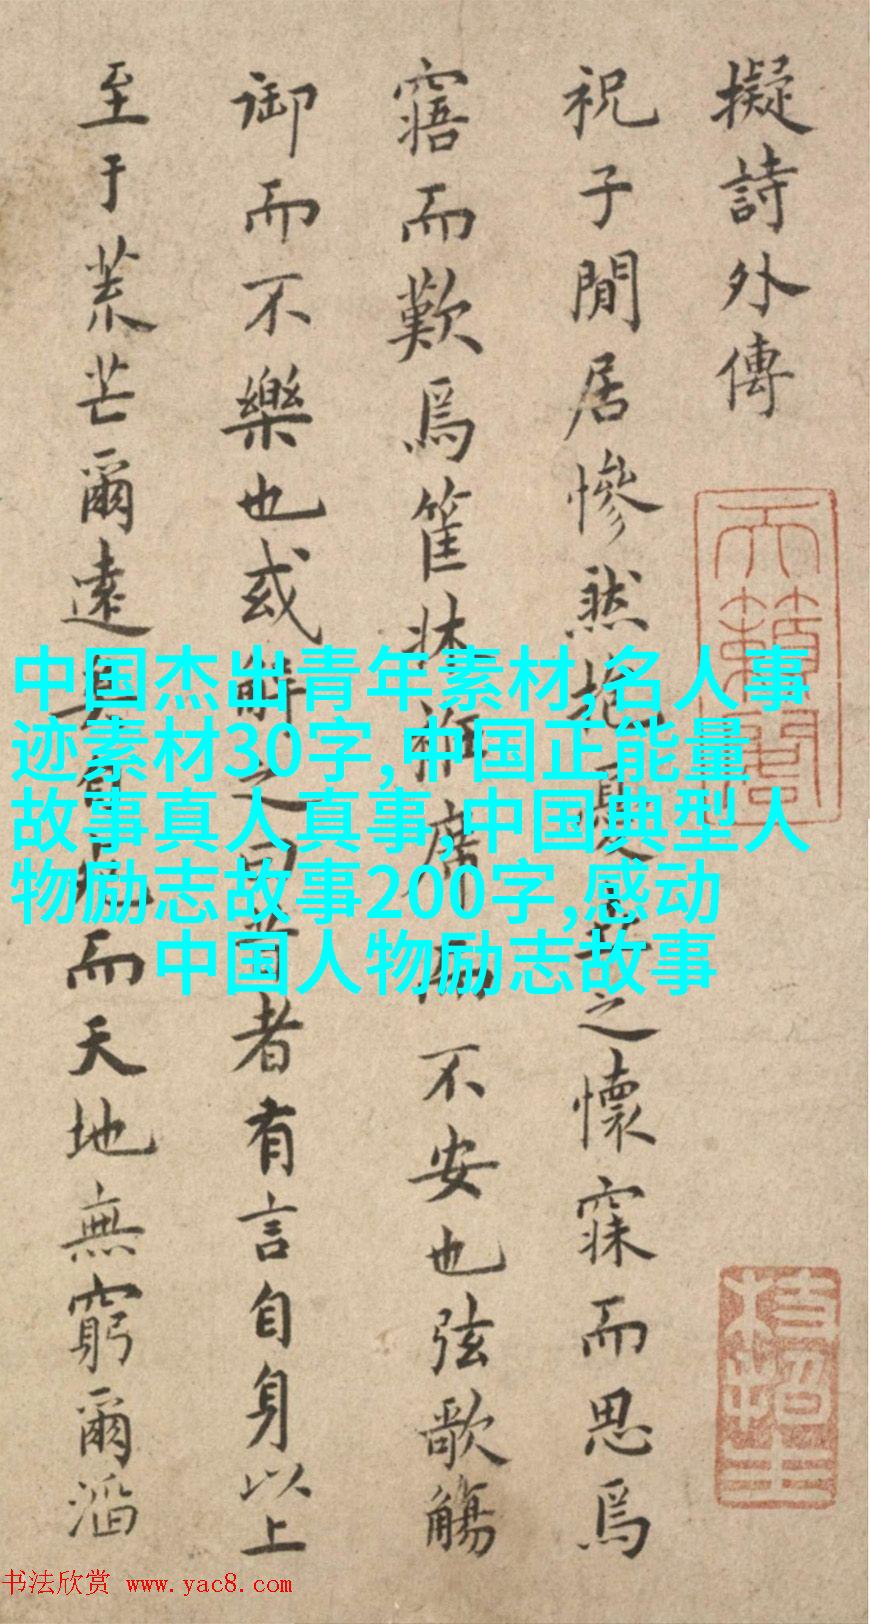 擬詩外傳
祝子閒居慘然抱憂之懷寐而思焉
寤而歎焉筐牀衽席而不安也弦歌觴
御而不樂也或解之曰昔者有言自身以上
至于荒芒爾遠矣自死而天地無窮爾滔
天籟閣
枝指生
中国杰出青年素材,名人事
迹素材30字,中国正能量
故事真人真事,中国典型人
物励志故事200字,感动
中国人物励志故事
书法欣赏 www.yac8.com